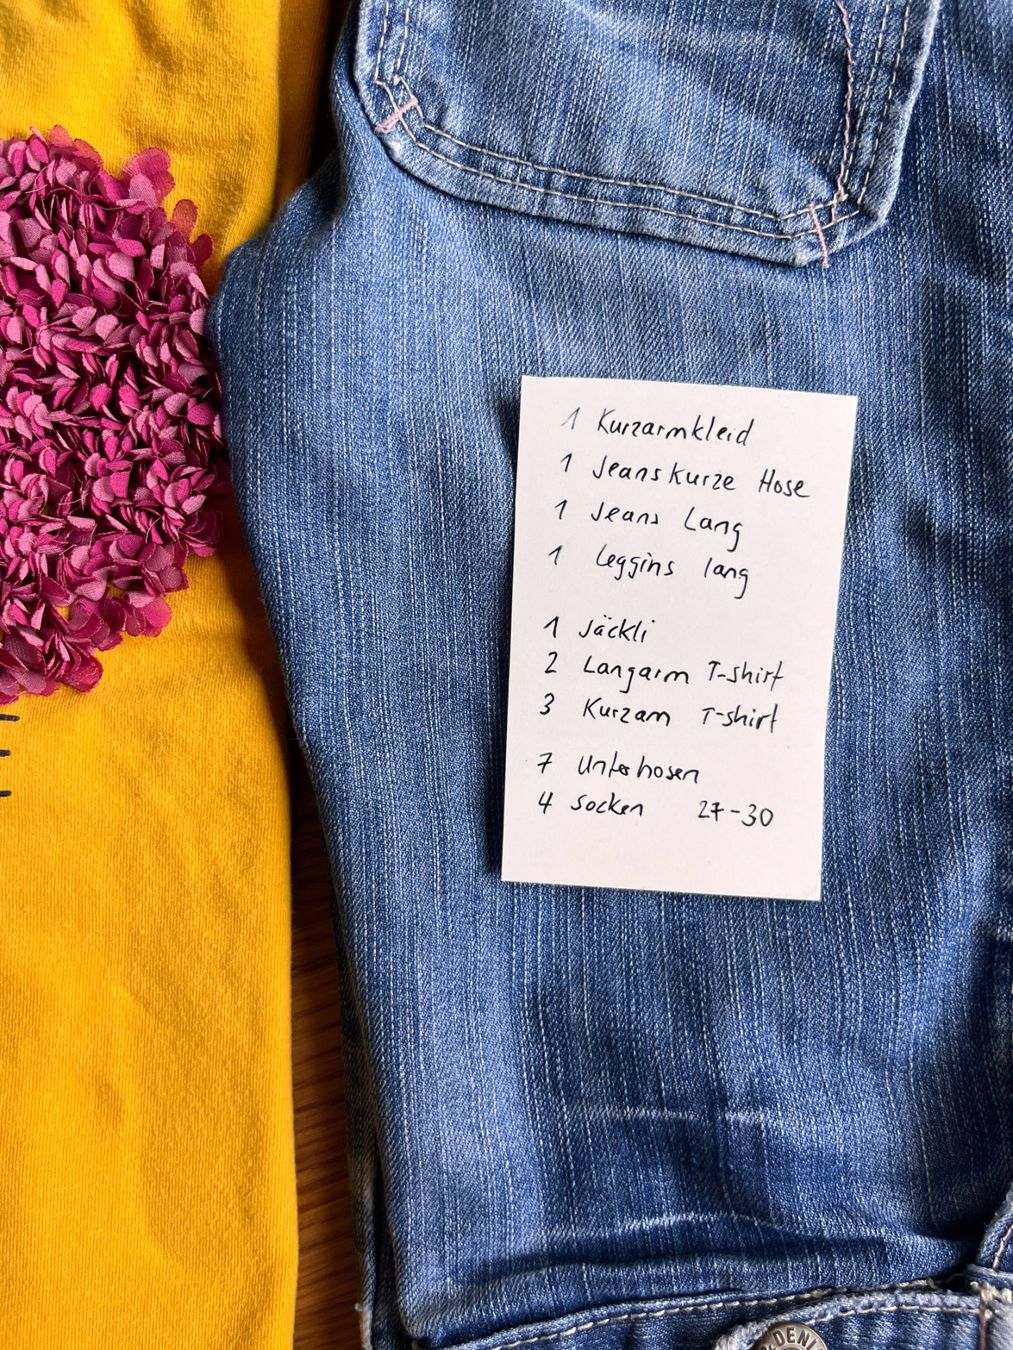 1 Kurzarmkleid
1 Jeans Kurze Hose
1 Jeans Lang
1 Leggins lang
1 Jäckli
2 Langarm T-shirt
3 Kurzam T-shirt
7 Unterhosen
4 Socken 27-30
DENI